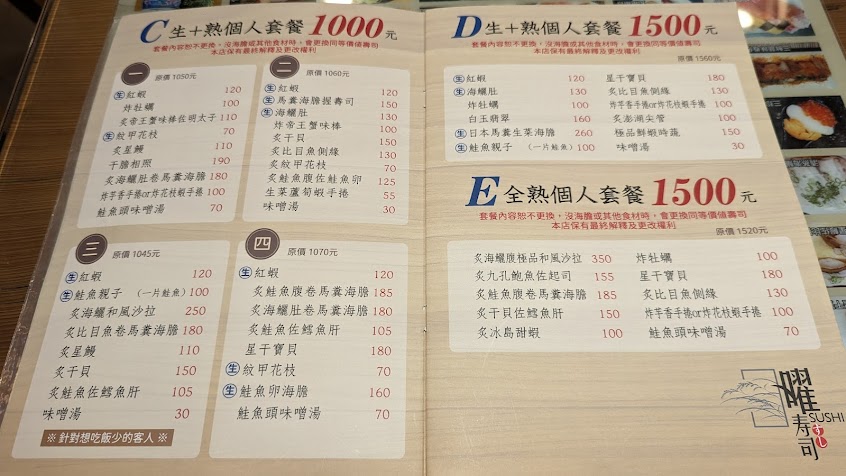 C 生+熟個人套餐 1000元
套餐內容恕不更換，沒海膽或其他食材時，會更換同等價值壽司
本店保有最終解釋及更改權利
一 原價 1050元
生 紅蝦 120
炸牡蠣 100
炙帝王蟹味棒佐明太子 110
生 紋甲花枝 70
炙星鰻 110
干膽相照 190
炙海鱺肚卷馬糞海膽 180
炸芋香手捲or炸花枝蝦手捲 100
鮭魚頭味噌湯 70
二 原價 1060元
生 紅蝦 120
生 馬糞海膽握壽司 150
生 海鱺肚 130
炸帝王蟹味棒 100
炙干貝 150
炙比目魚側緣 130
炙紋甲花枝 70
炙鮭魚腹佐鮭魚卵 125
生菜蘆筍蝦手捲 55
味噌湯 30
三 原價 1045元
生 紅蝦 120
生 鮭魚親子 (一片鮭魚) 100
炙海鱺和風沙拉 250
炙比目魚卷馬糞海膽 180
炙星鰻 110
炙干貝 150
炙鮭魚佐鱈魚肝 105
味噌湯 30
※ 針對想吃飯少的客人 ※
四 原價 1070元
生 紅蝦 120
炙鮭魚腹卷馬糞海膽 185
炙海鱺肚卷馬糞海膽 180
炙鮭魚佐鱈魚肝 105
星干寶貝 180
生 紋甲花枝 70
生 鮭魚卵海膽 160
鮭魚頭味噌湯 70
D 生+熟個人套餐 1500元
套餐內容恕不更換，沒海膽或其他食材時，會更換同等價值壽司
本店保有最終解釋及更改權利
原價 1560元
生 紅蝦 120
生 海鱺肚 130
炸牡蠣 100
白玉翡翠 160
生 日本馬糞生菜海膽 260
生 鮭魚親子 (一片鮭魚) 100
星干寶貝 180
炙比目魚側緣 130
炸芋香手捲or炸花枝蝦手捲 100
炙澎湖尖管 100
極品鮮蝦時蔬 150
味噌湯 30
E 全熟個人套餐 1500元
套餐內容恕不更換，沒海膽或其他食材時，會更換同等價值壽司
本店保有最終解釋及更改權利
原價 1520元
炙海鱺腹極品和風沙拉 350
炙九孔鮑魚佐起司 155
炙鮭魚腹卷馬糞海膽 185
炙干貝佐鱈魚肝 150
炙冰島甜蝦 100
炸牡蠣 100
星干寶貝 180
炙比目魚側緣 130
炸芋香手捲or炸花枝蝦手捲 100
鮭魚頭味噌湯 70
曜壽司
SUSHI
すし